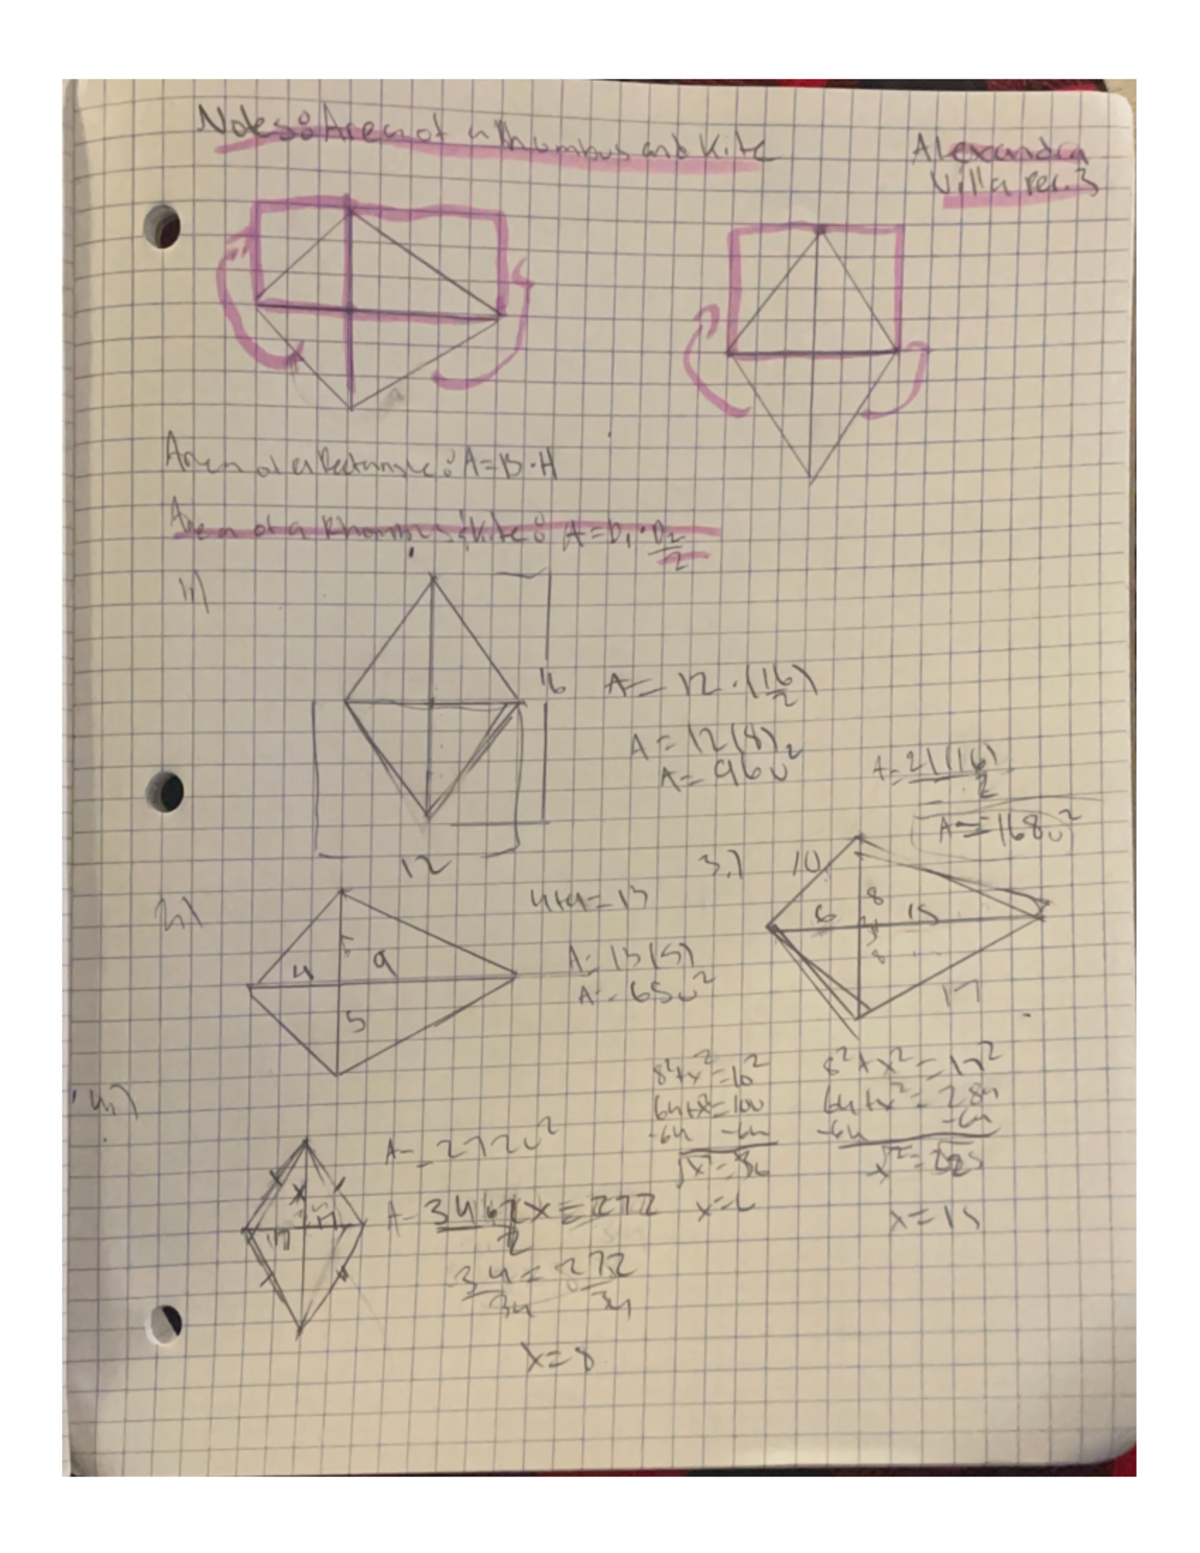 Notes: Area of a Rhumbus and Kite
Alexandra
Villa Per. 3
Area of a Rectangle: A=B·H
Area of a Rhombus & Kite: A=D₁·D₂/2
1.)
16
12
A= 12·(16/2)
A=12(8)
A=96u²
2.)
4
9
5
4+9=13
A=13(5)
A=65u²
A=21(16)/2
A=168u²
3.)
10
8
6
15
8
17
8²+x²=10²
64+x²=100
-64 -64
√x²=36
x=6
8²+x²=17²
64+x²=289
-64 -64
x²=225
x=15
4.)
x
17
17
A=272u²
x=8